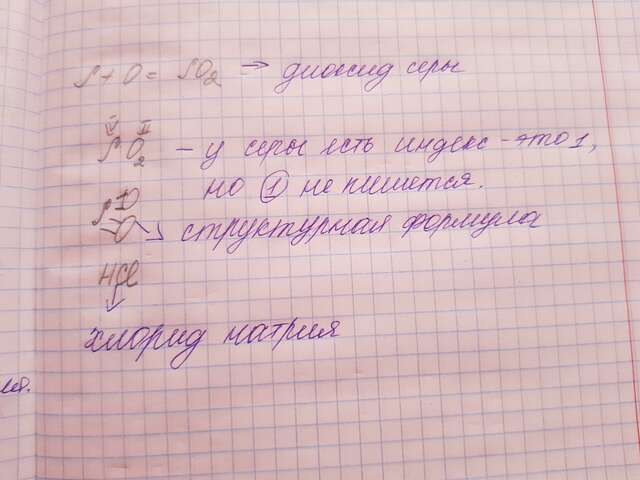 S + O = SO2 → диоксид серы
IV II
SO2 – у серы есть индекс - это 1,
но 1 не пишется.
S=O
=O → структурная формула
HCl
↓
хлорид натрия
ия.